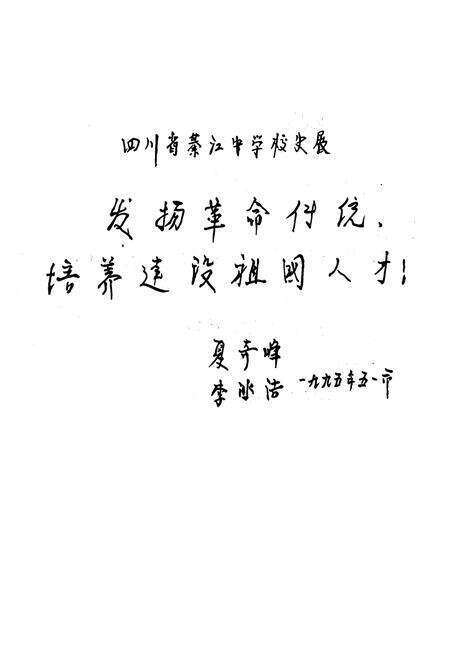 四川省綦江中学校史展
发扬革命传统、
培养建设祖國人才！
夏奇峰
李冰洁 一九九五年五·一节